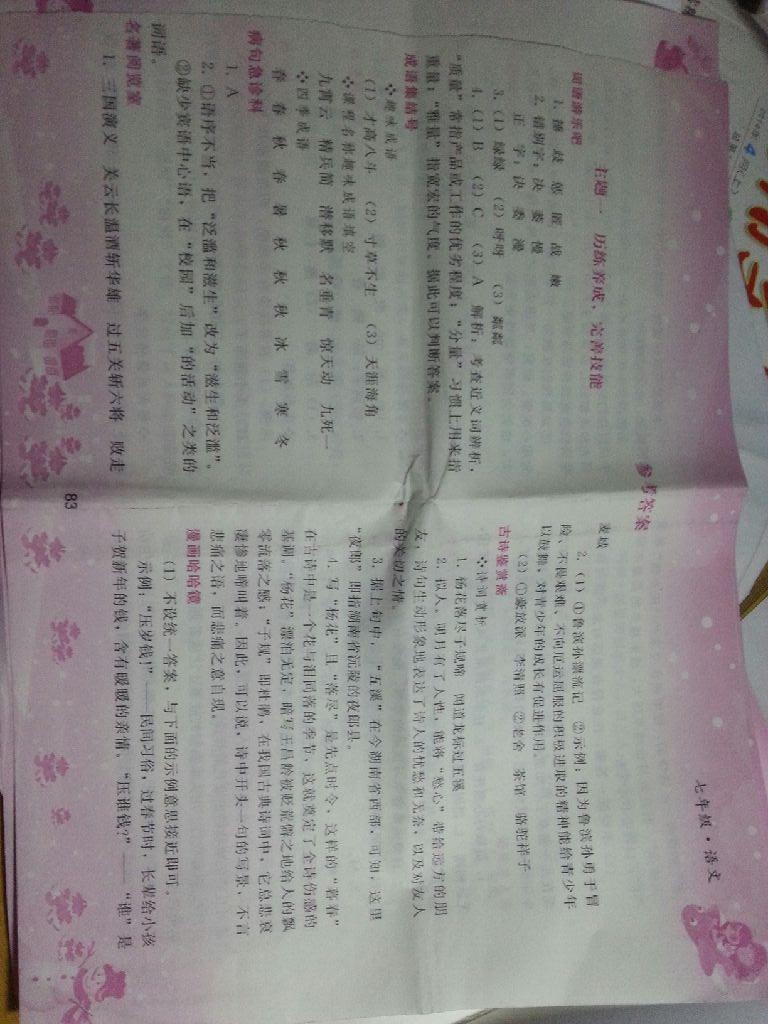 七年级·语文
参考答案
主题一 历练养成、完善技能
词语游乐吧
1. 捶 歧 惩 匿 战 嫩
2. 错别字：决 萎 慢
正 字：诀 委 漫
3.（1）绿绿 （2）呼呼 （3）粼粼
4.（1）B （2）C （3）A 解析：考查近义词辨析，
“质量”常指产品或工作的优劣程度；“分量”习惯上用来指
重量；“雅量”指宽宏的气度。据此可以判断答案。
成语集结号
❖趣味成语
（1）才高八斗 （2）寸草不生 （3）天涯海角
❖课程名称趣味成语填空
九霄云 精兵简 潜移默 名垂青 惊天动 九死一
❖四季成语
春 春 秋 春 暑 秋 秋 秋 冰 雪 寒 冬
病句急诊科
1. A
2. ①语序不当，把“泛滥和滋生”改为“滋生和泛滥”。
②缺少宾语中心语，在“校园”后加“的活动”之类的
词语。
名著阅览室
1. 三国演义 关云长温酒斩华雄 过五关斩六将 败走
麦城
2.（1）①鲁滨孙漂流记 ②示例：因为鲁滨孙勇于冒
险、不畏艰难、不向厄运屈服的积极进取的精神能给青少年
以鼓舞，对青少年的成长有促进作用。
（2）①豪放派 李清照 ②老舍 茶馆 骆驼祥子
古诗鉴赏斋
❖诗词赏析
1. 杨花落尽子规啼 闻道龙标过五溪
2. 拟人。明月有了人性，能将“愁心”带给远方的朋
友，诗句生动形象地表达了诗人的忧愁和无奈，以及对友人
的关切之情。
3. 据上句中，“五溪”在今湖南省西部，可知，这里
“夜郎”即指湖南省沅陵的夜郎县。
4. 写“杨花”且“落尽”是先点时令，这样的“暮春”
在古诗中是一个花与泪同落的季节，这就奠定了全诗伤感的
基调。“杨花”漂泊无定，暗写王昌龄被贬荒僻之地给人的飘
零流落之感；“子规”即杜鹃，在我国古典诗词中，它总悲哀
凄惨地啼叫着。因此，可以说，诗中开头一句的写景，不言
悲痛之语，而悲痛之意自现。
漫画哈哈镜
（1）不设统一答案，与下面的示例意思接近即可。
示例：“压岁钱！”——民间习俗，过春节时，长辈给小孩
子贺新年的钱，含有暖暖的亲情。“压谁钱？”——“谁”是
83